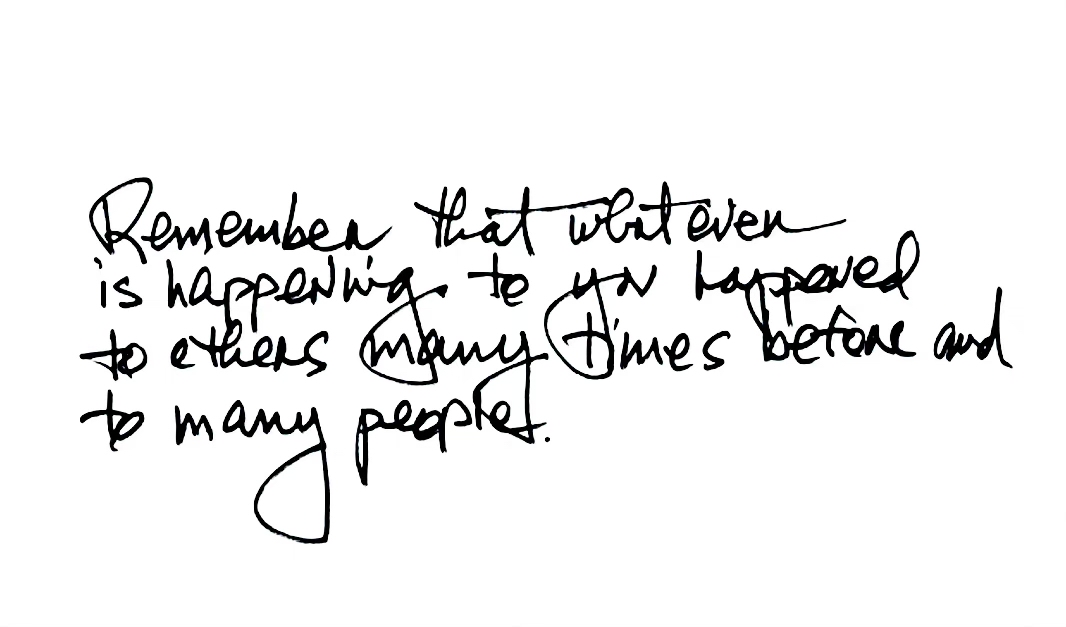 Remember that whatever
is happening to you happened
to others many times before and
to many people.